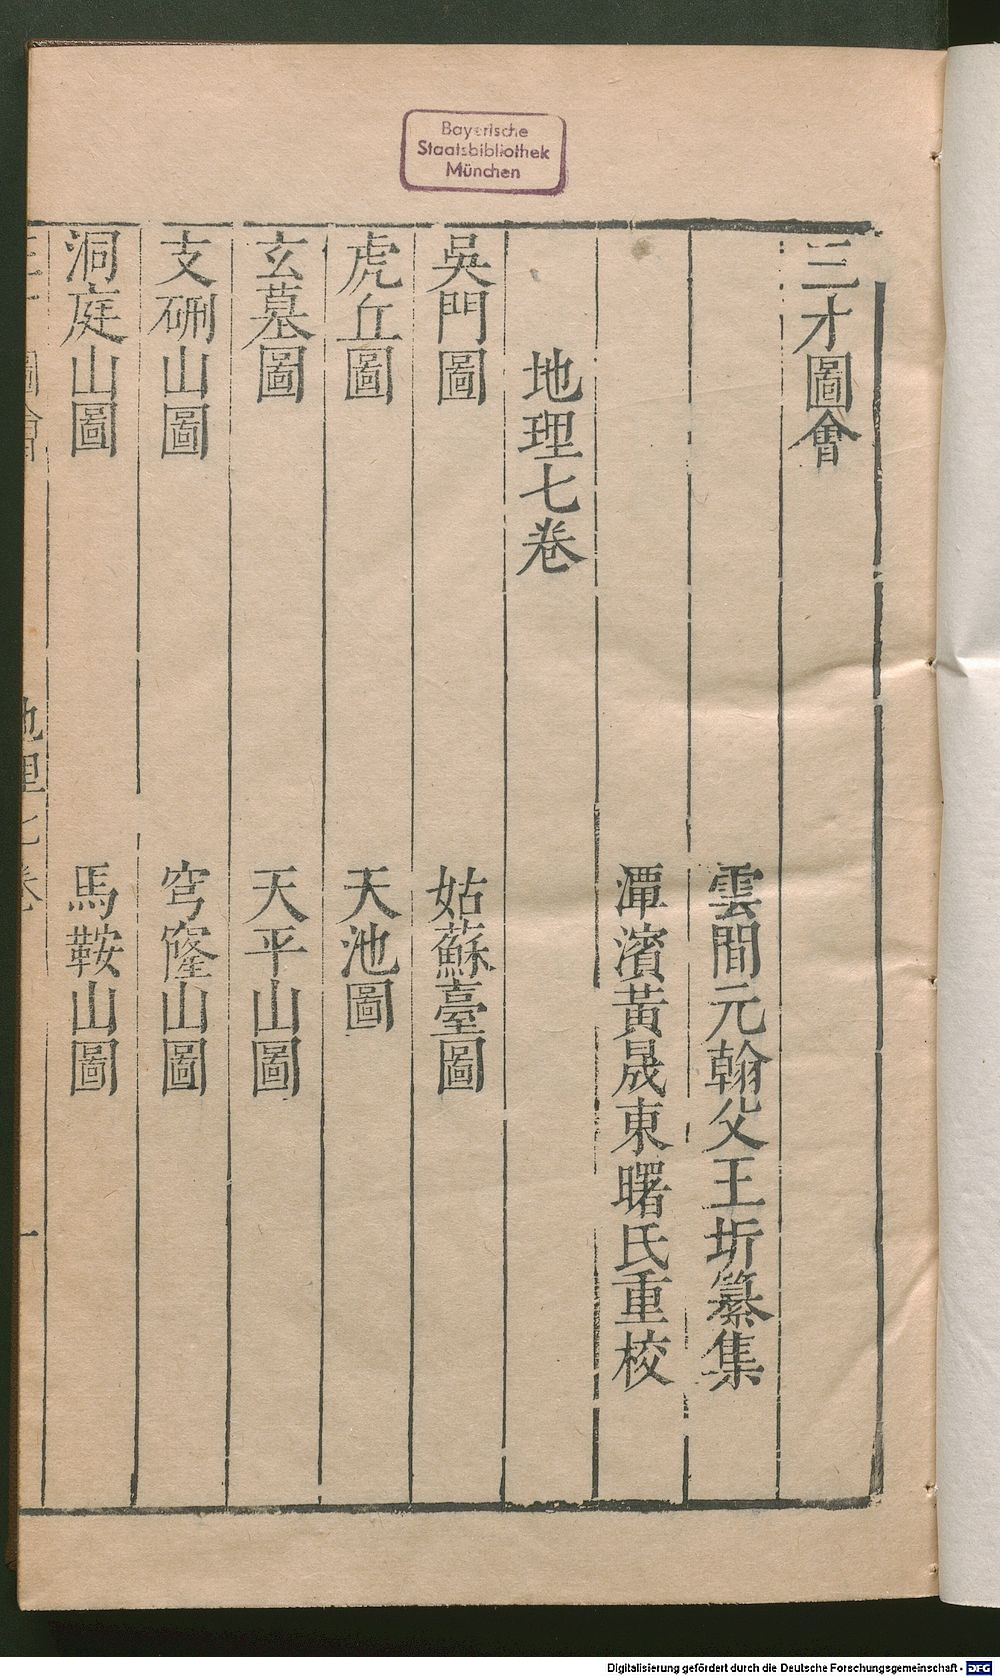 Bayerische
Staatsbibliothek
München
三才圖會
雲間元翰父王圻纂集
潭濱黃晟東曙氏重校
地理七卷
吳門圖 姑蘇臺圖
虎丘圖 天池圖
玄墓圖 天平山圖
支硎山圖 穹窿山圖
洞庭山圖 馬鞍山圖
地理七卷 一
Digitalisierung gefördert durch die Deutsche Forschungsgemeinschaft - DFG